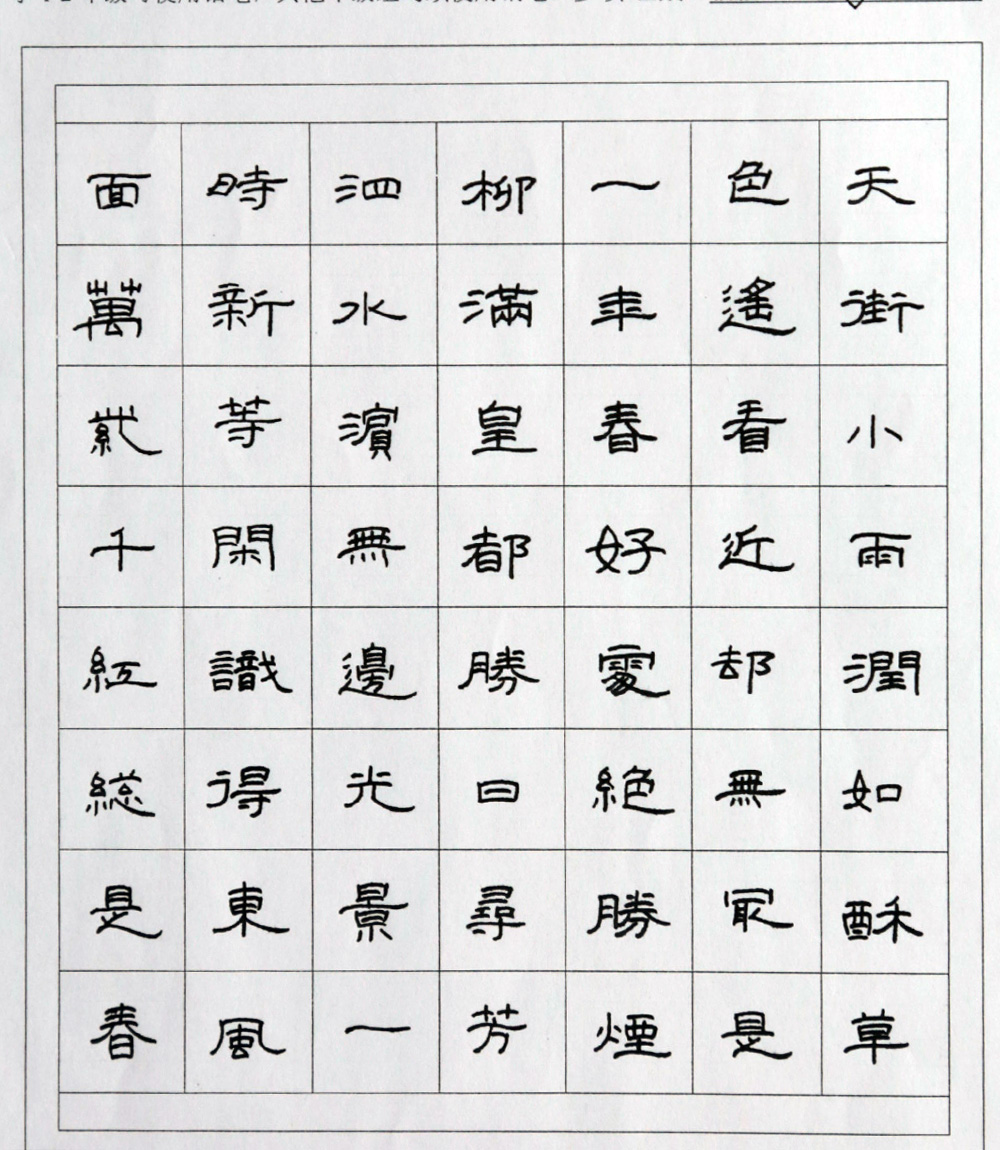 天街小雨潤如酥草
色遙看近却無冣是
一年春好處絕勝煙
柳滿皇都勝日尋芳
泗水濱無邊光景一
時新等閑識得東風
面萬紫千紅総是春